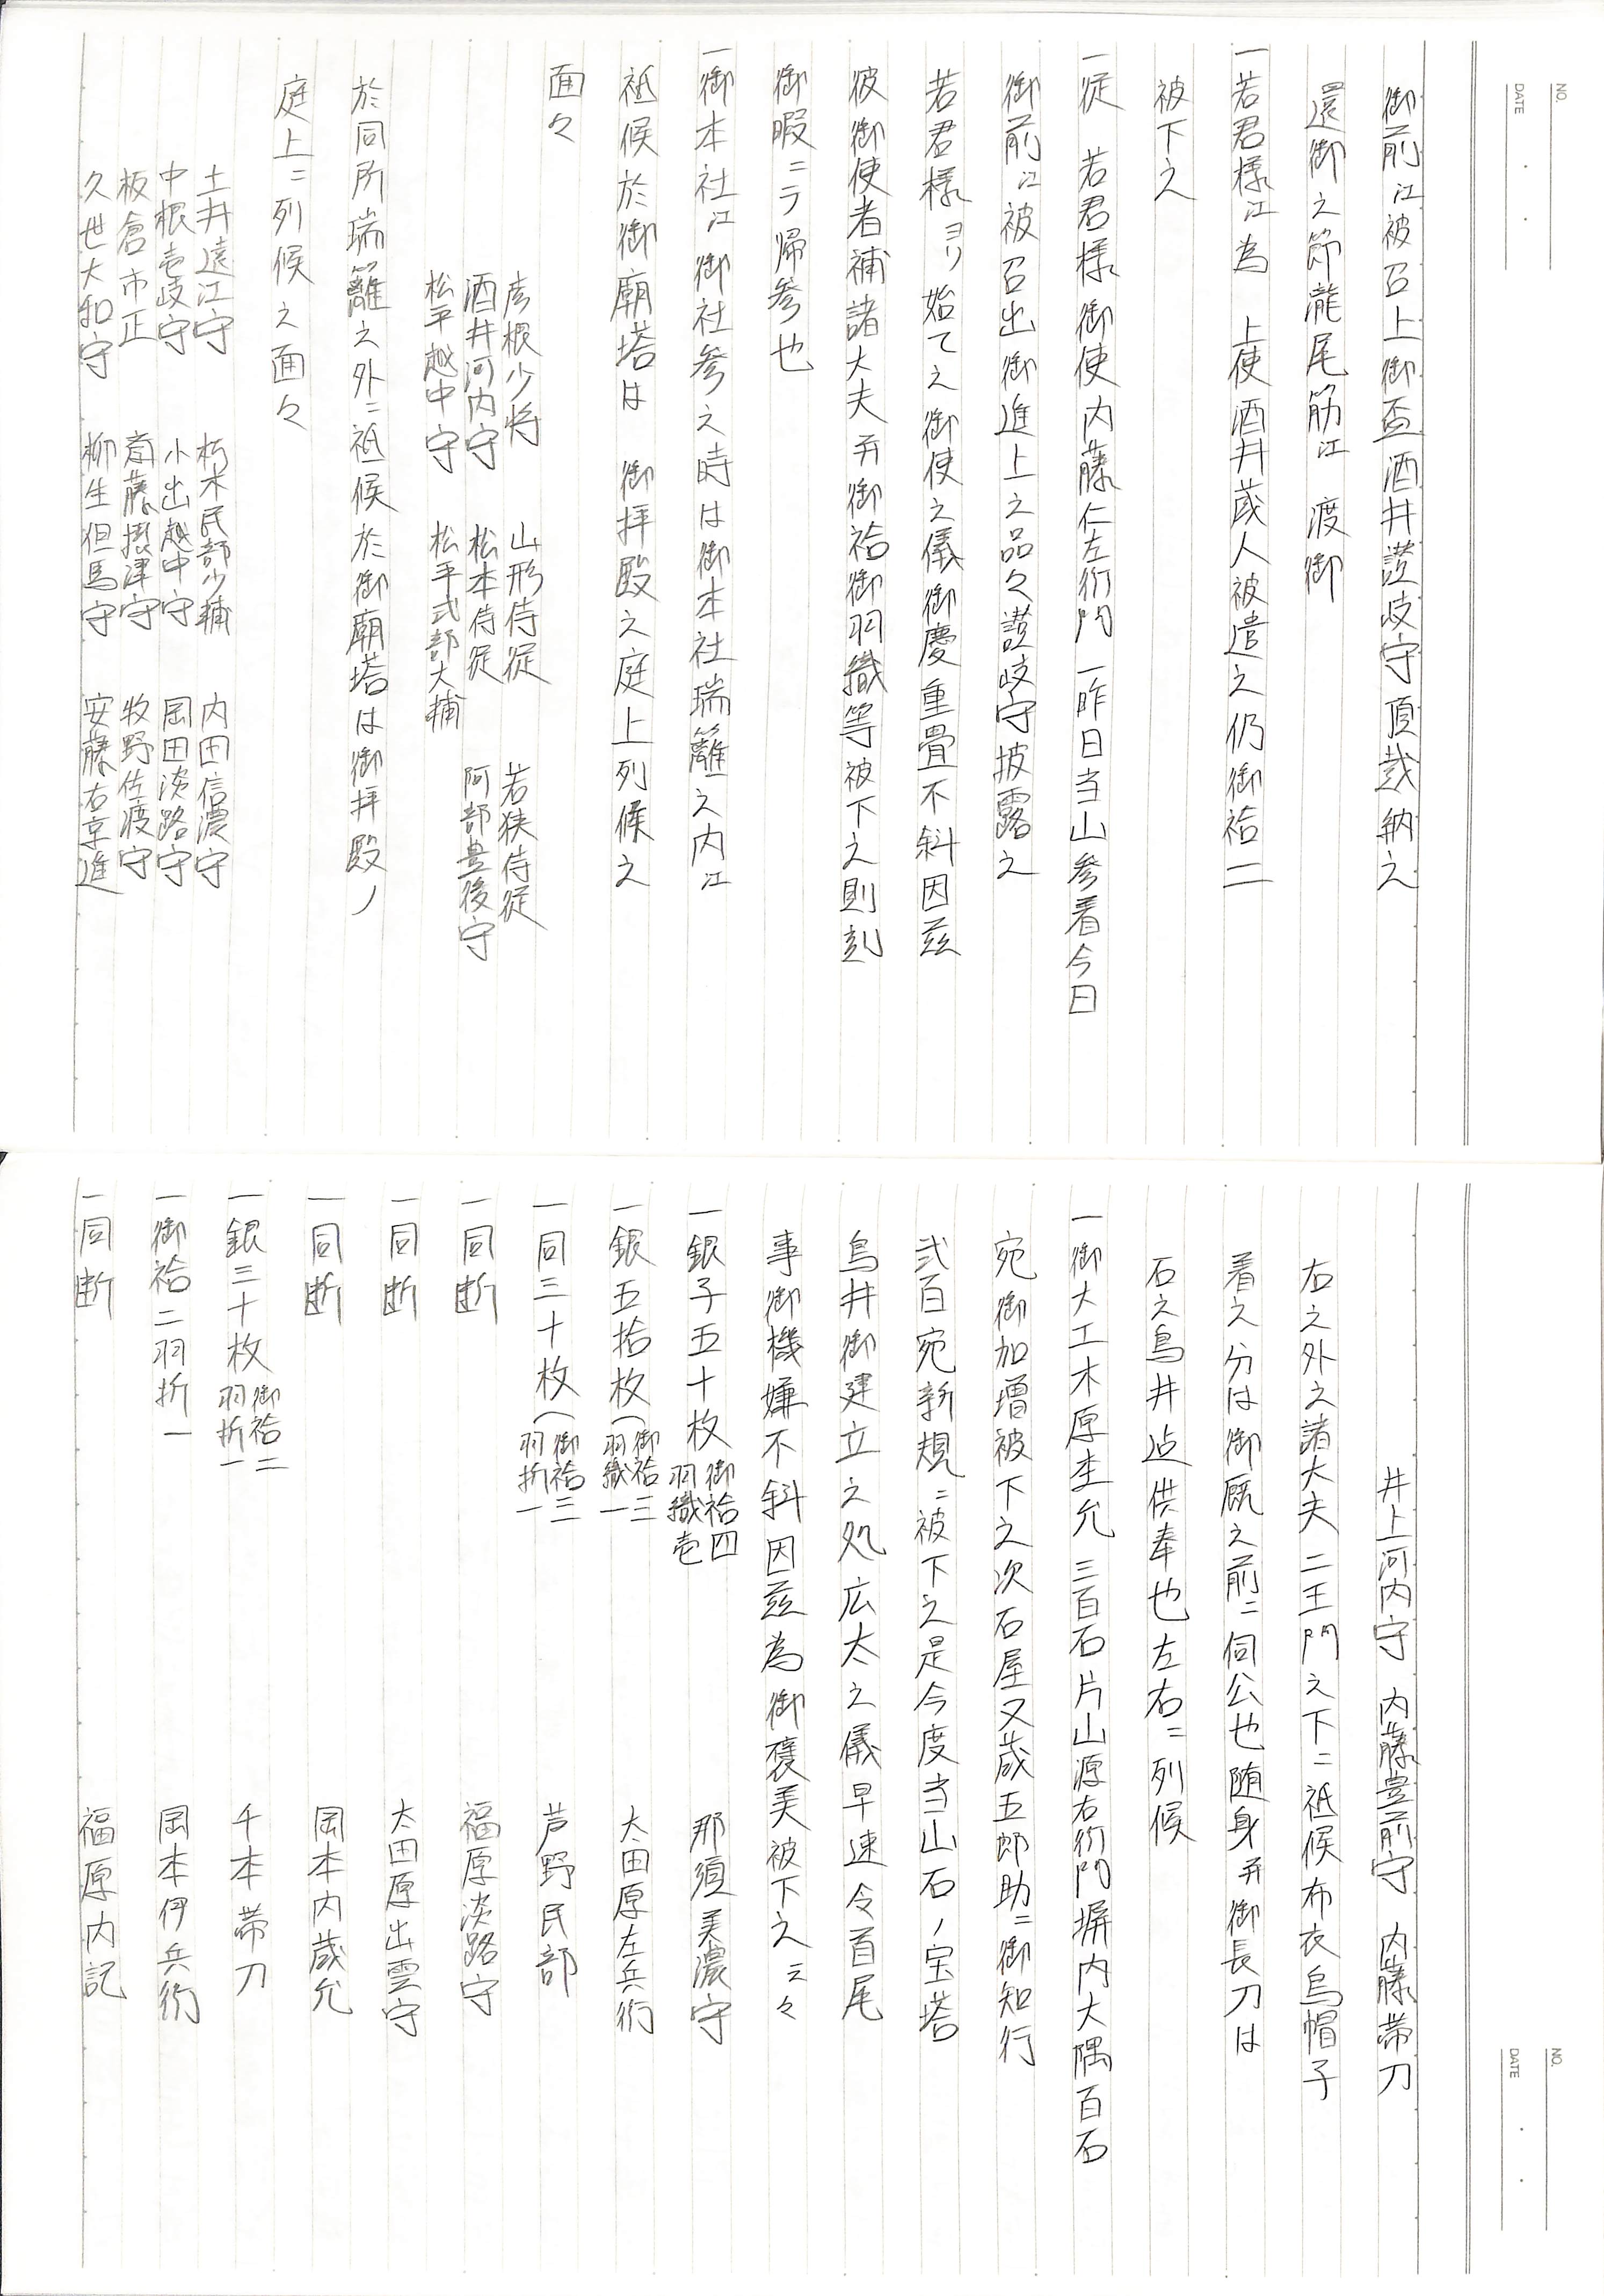 NO.
DATE
御前江被召上御盃酒井讃岐守頂戴納之
還御之節瀧尾筋江　渡御
一若君様江為　上使酒井蔵人被遣之仍御袷二
被下之
一従　若君様御使内藤仁左衛門一昨日当山参着今日
御前江被召出御進上之品々讃岐守披露之
若君様ヨリ始てえ御使之儀御慶重畳不斜因茲
彼御使者補諸大夫并御袷御羽織等被下之則刻
御暇ニテ帰参也
一御本社江御社参之時は御本社瑞籬之内江
祗候於御廟塔は　御拝殿之庭上列候之
面々
彦根少将　山形侍従　若狭侍従
酒井河内守　松本侍従　阿部豊後守
松平越中守　松平式部大輔
於同所瑞籬之外ニ祗候於御廟塔は御拝殿ノ
庭上ニ列候之面々
土井遠江守　朽木民部少輔　内田信濃守
中根壱岐守　小出越中守　岡田淡路守
板倉市正　斎藤摂津守　牧野佐渡守
久世大和守　柳生但馬守　安藤右京進
NO.
DATE
井上河内守　内藤豊前守　内藤帯刀
右之外之諸大夫二王門之下ニ祗候布衣烏帽子
着之分は御厩之前ニ伺公也随身并御長刀は
石之鳥井迠供奉也左右ニ列候
一御大工木原杢允三百石片山源右衛門塀内大隅百石
宛御加増被下之次石屋又蔵五郎助ニ御知行
弐百宛新規ニ被下之是今度当山石ノ宝塔
鳥井御建立之処広太之儀早速令首尾
事御機嫌不斜因茲為御褒美被下之云々
一銀子五十枚　御袷四　羽織壱　那須美濃守
一銀五拾枚（御袷三　羽織一　大田原左兵衛
一同三十枚（御袷三　羽折一　芦野民部
一同断　福原淡路守
一同断　太田原出雲守
一同断　岡本内蔵允
一銀三十枚　御袷二　羽折一　千本帯刀
一御袷二羽折一　岡本伊兵衛
一同断　福原内記